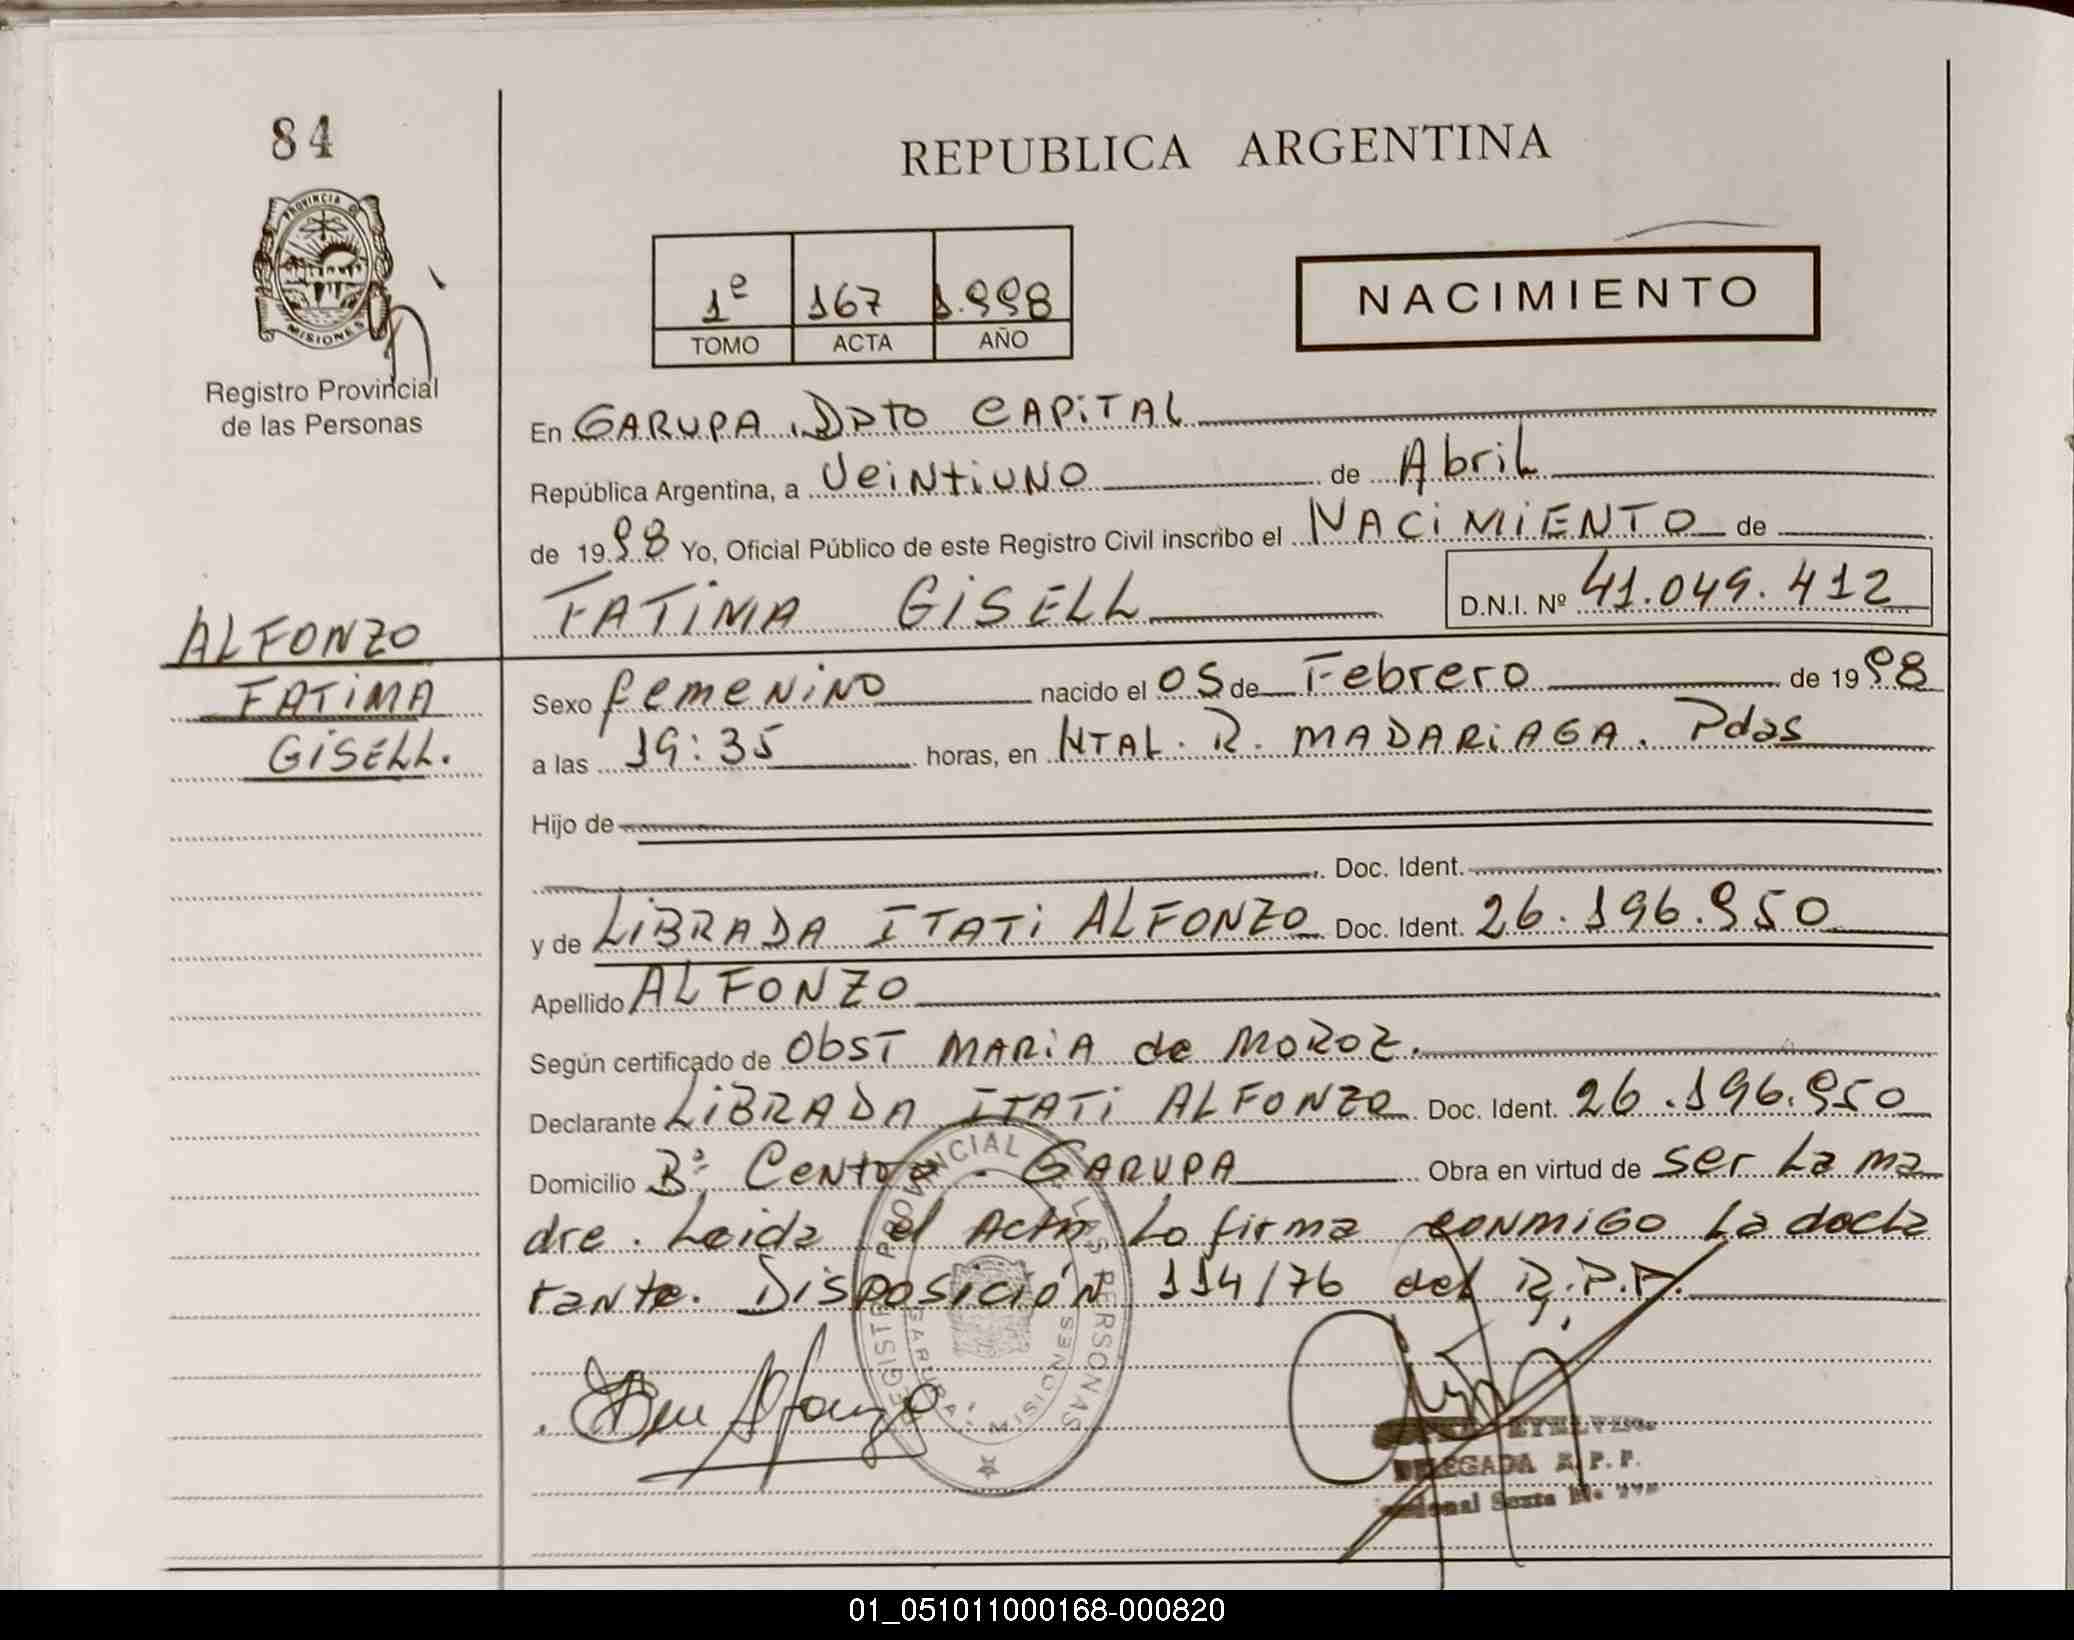 84
REPUBLICA ARGENTINA
PROVINCIA DE
MISIONES
Registro Provincial
de las Personas
1º 167 1.998
TOMO ACTA AÑO
NACIMIENTO
En GARUPA. Dpto CAPITAL
República Argentina, a Veintiuno de Abril
de 1998 Yo, Oficial Público de este Registro Civil inscribo el NACIMIENTO de
FATIMA GISELL D.N.I. Nº 41.049.412
ALFONZO
FATIMA
GISELL.
Sexo femenino nacido el 05 de Febrero de 1998
a las 19:35 horas, en HTAL. R. MADARIAGA. Pdas
Hijo de
Doc. Ident.
y de LIBRADA ITATI ALFONZO Doc. Ident. 26.196.950
Apellido ALFONZO
Según certificado de Obst MARIA de MOROZ.
Declarante LIBRADA ITATI ALFONZO Doc. Ident. 26.196.950
Domicilio Bº Centro - GARUPA Obra en virtud de ser La ma
dre. Leida el Acta La firma conmigo La decla
rante. Disposición 114/76 del R.P.P.
REGISTRO PROVINCIAL DE LAS PERSONAS
GARUPA - MISIONES
Alfonzo
DELEGADA R. P. P.
01_051011000168-000820